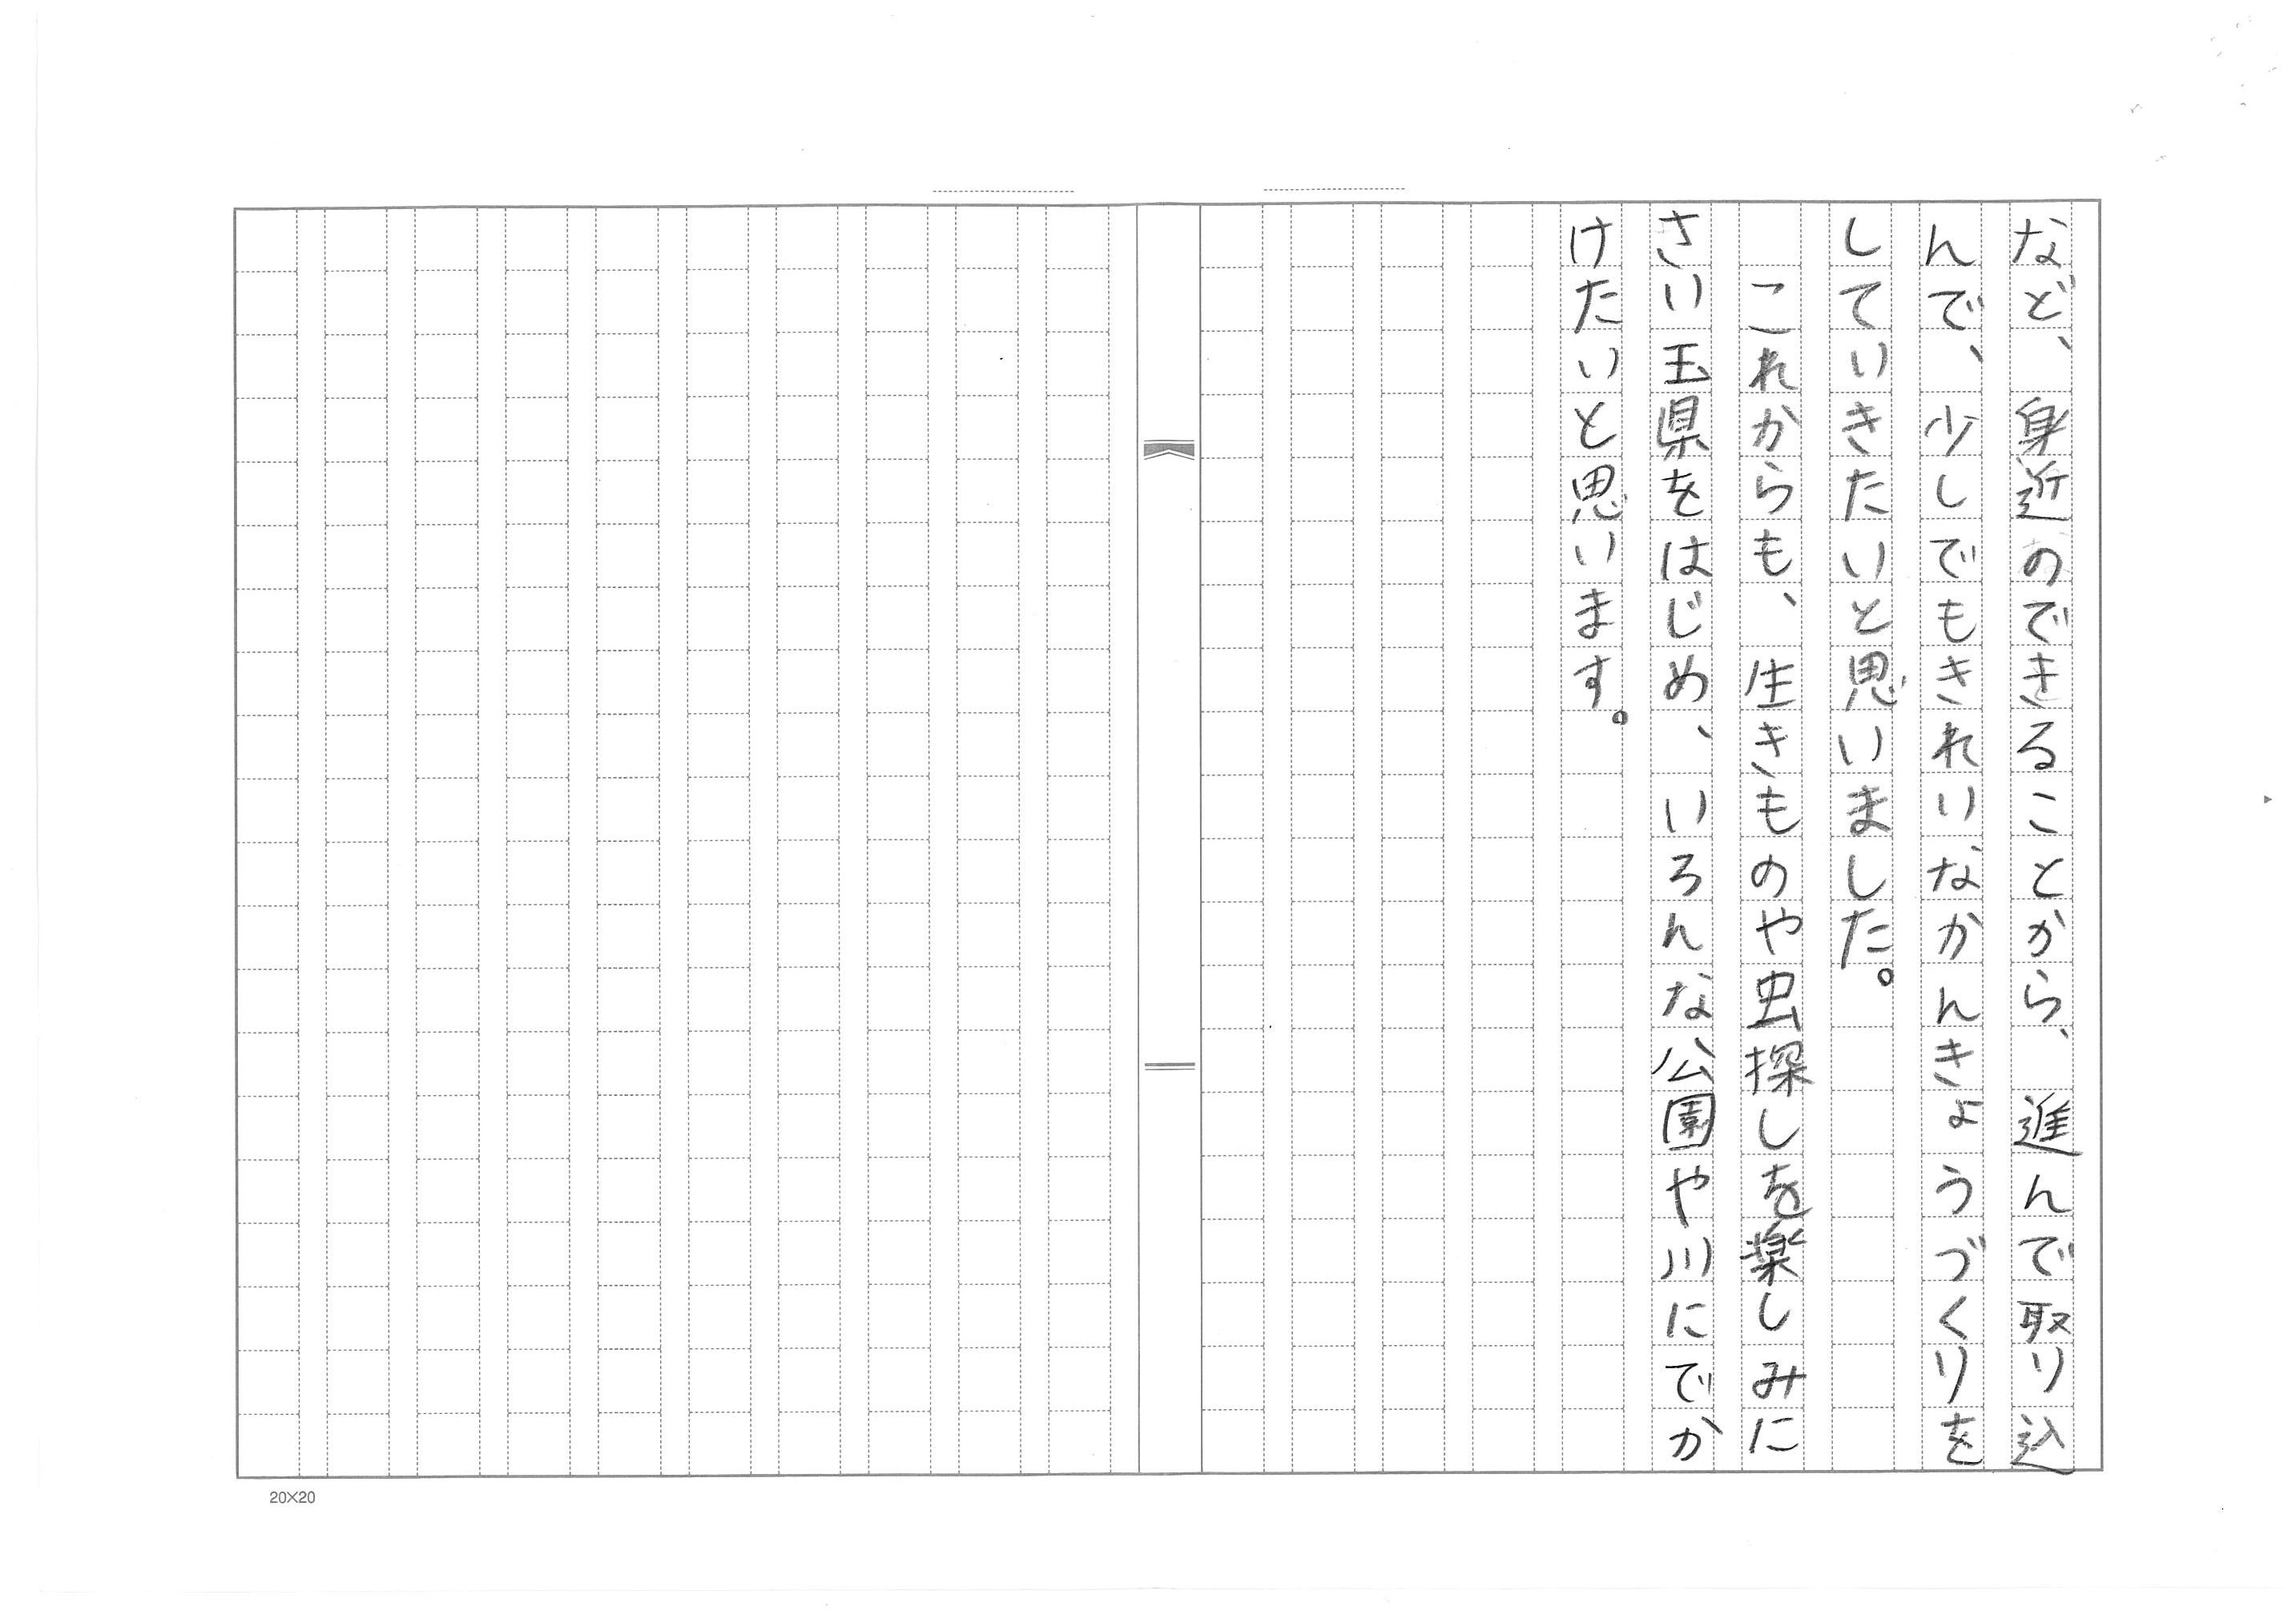 など、身近のできることから、進んで取り込
んで、少しでもきれいなかんきょうづくりを
していきたいと思いました。
　これからも、生きものや虫探しを楽しみに
さい玉県をはじめ、いろんな公園や川にでか
けたいと思います。
20×20